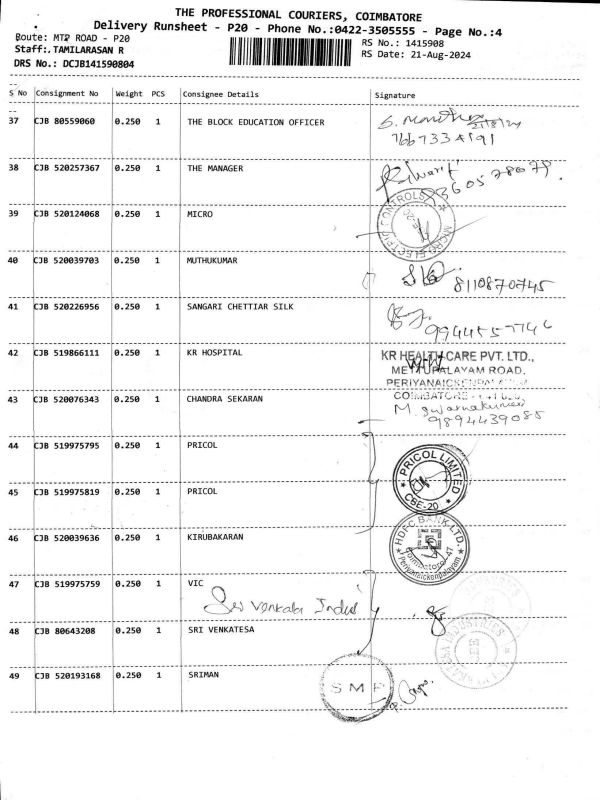 THE PROFESSIONAL COURIERS, COIMBATORE
Delivery Runsheet - P20 - Phone No.:0422-3505555 - Page No.:4
Route: MTP ROAD - P20
RS No.: 1415908
Staff:.TAMILARASAN R
RS Date: 21-Aug-2024
DRS No.: DCJB141590804
S No Consignment No Weight PCS Consignee Details Signature
37 CJB 80559060 0.250 1 THE BLOCK EDUCATION OFFICER
38 CJB 520257367 0.250 1 THE MANAGER
39 CJB 520124068 0.250 1 MICRO
40 CJB 520039703 0.250 1 MUTHUKUMAR
8110870745
41 CJB 520226956 0.250 1 SANGARI CHETTIAR SILK
42 CJB 519866111 0.250 1 KR HOSPITAL
KR HEALTH CARE PVT. LTD.,
METTUPALAYAM ROAD,
43 CJB 520076343 0.250 1 CHANDRA SEKARAN
9894439085
44 CJB 519975795 0.250 1 PRICOL
PRICOL LIMITED
CBE-20
45 CJB 519975819 0.250 1 PRICOL
46 CJB 520039636 0.250 1 KIRUBAKARAN
HDFC BANK LTD.
47 CJB 519975759 0.250 1 VIC
Sri Venkata Indus
48 CJB 80643208 0.250 1 SRI VENKATESA
49 CJB 520193168 0.250 1 SRIMAN
S M P